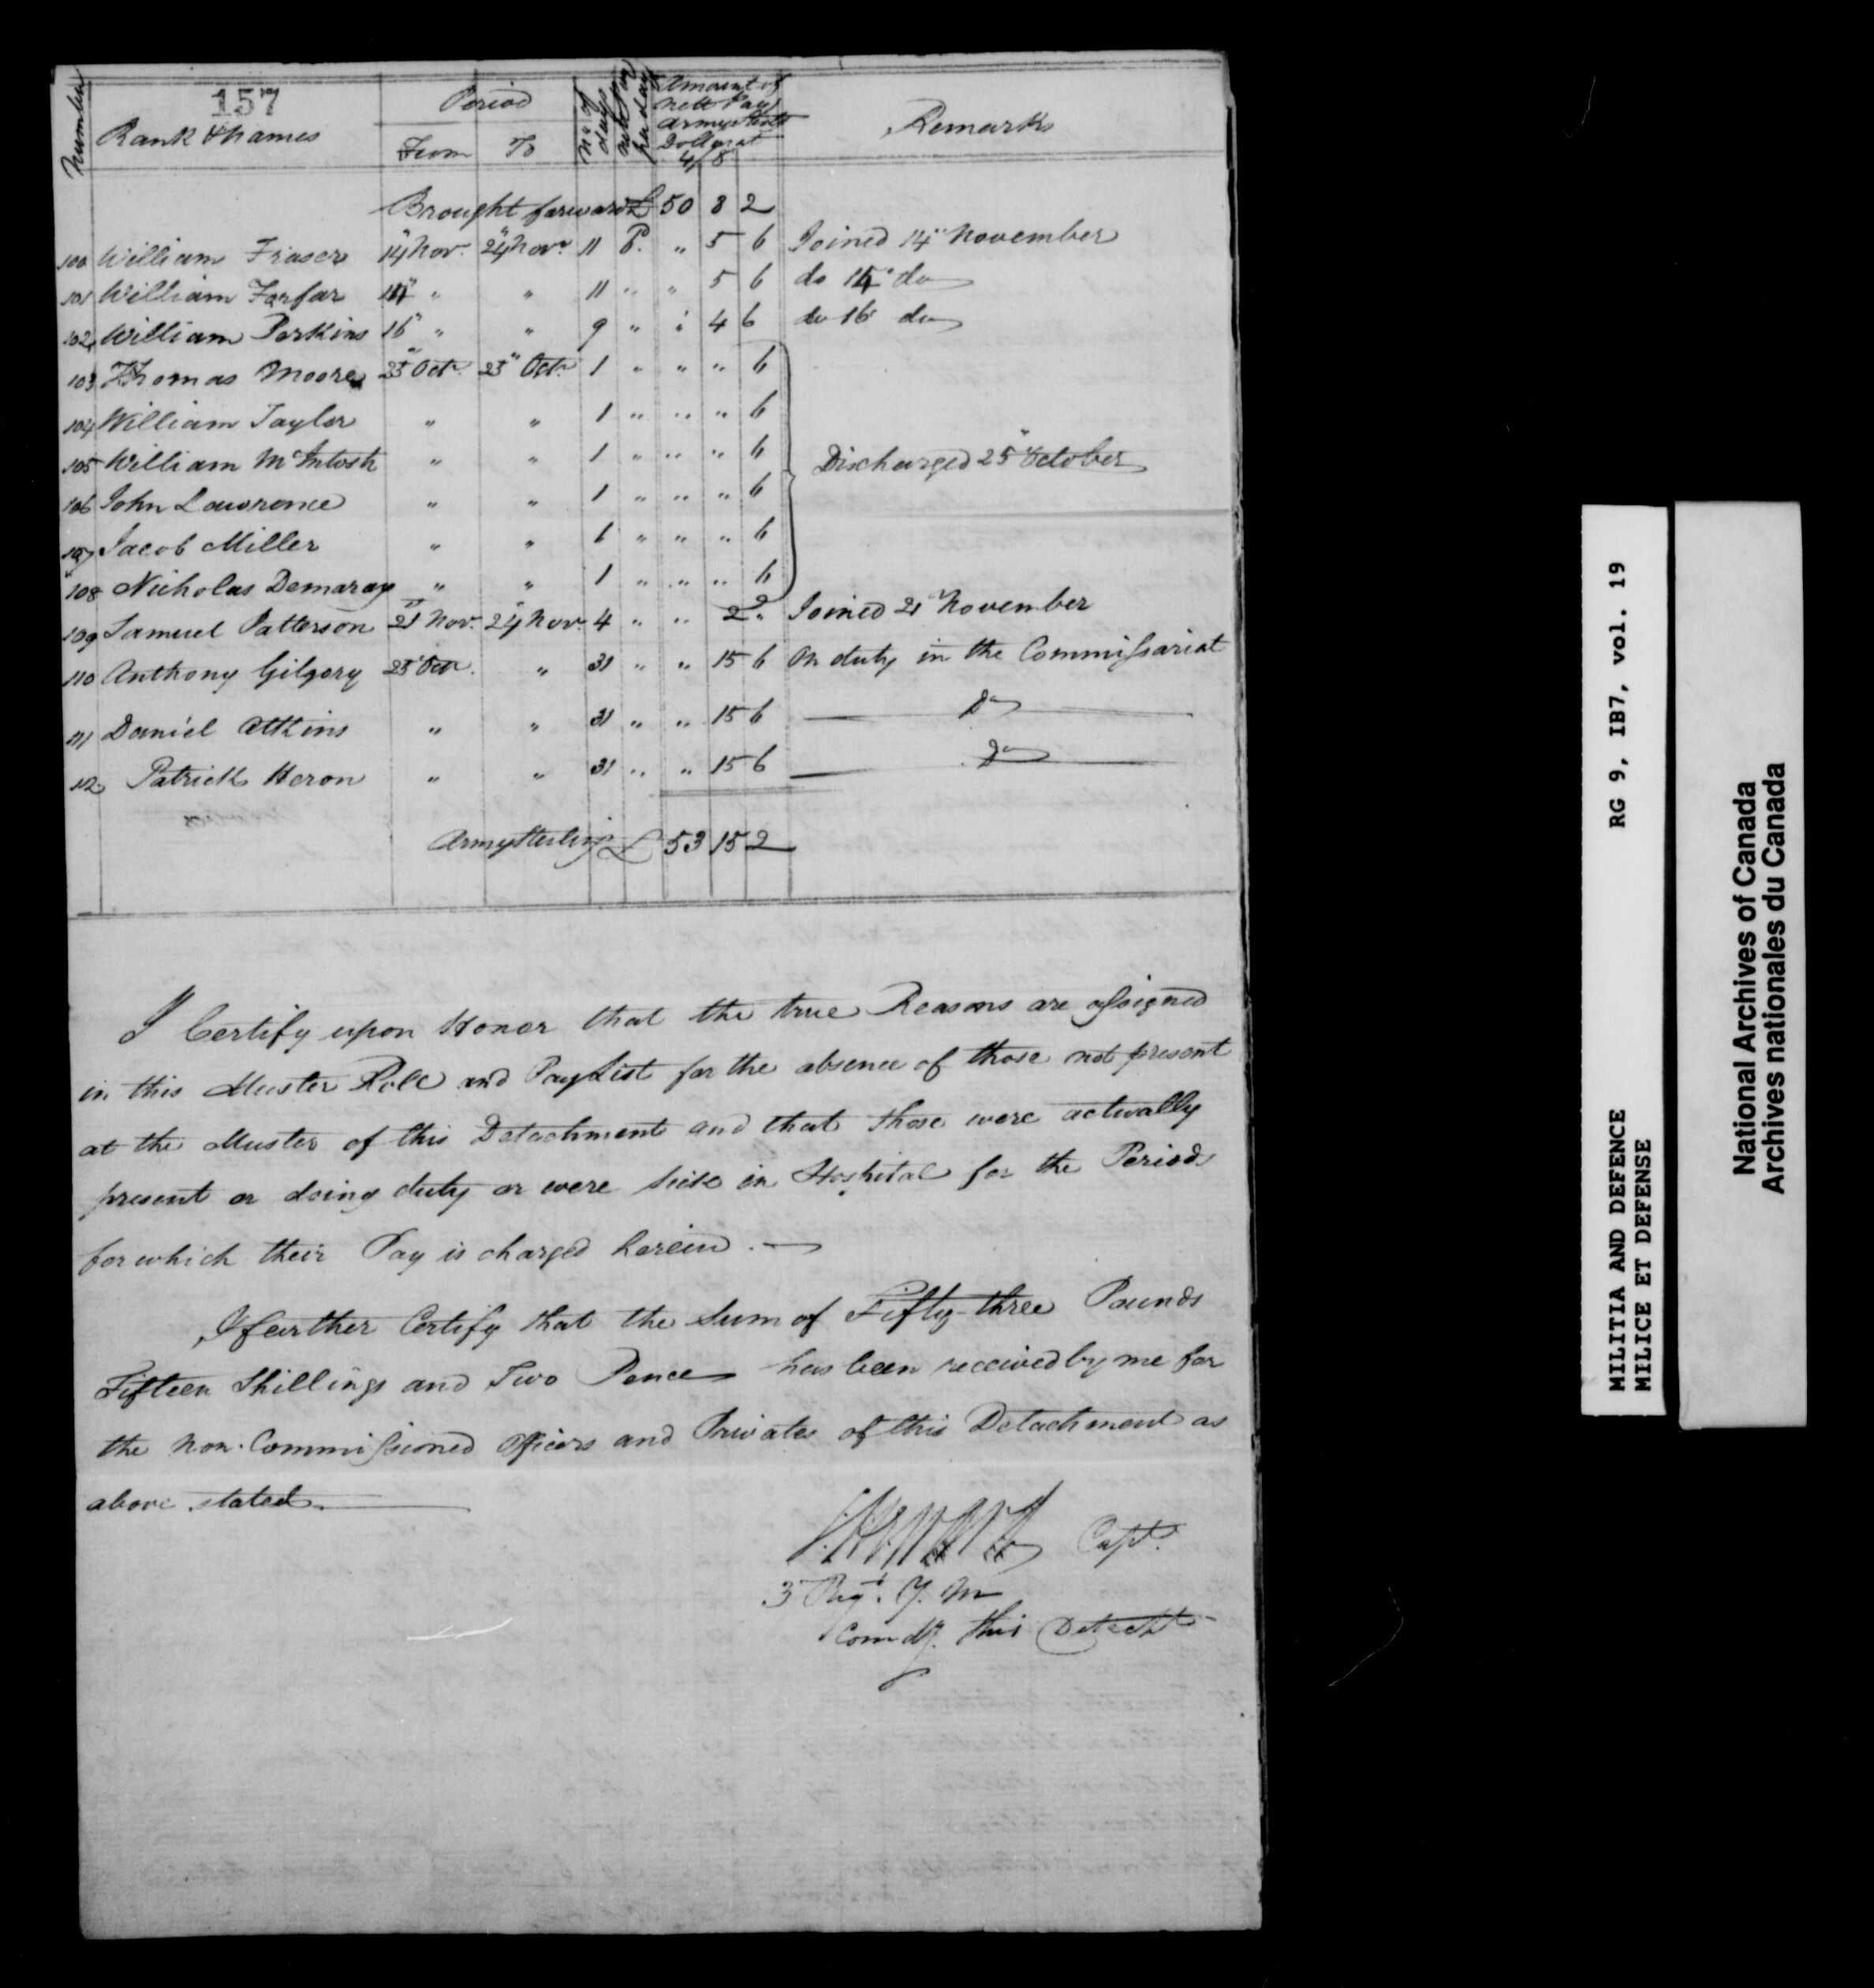 157
Number | Rank & Names | Period From | To | No of days | nett pay per day | Amount of nett Pay Army Sterlg Dollar at 4/8 | Remarks
Brought forward £ 50 8 2
100 William Fraser 14" Nov. 24" Nov. 11 6. " 5 6 Joined 14" November
101 William Farfar 14" " " 11 " " 5 6 do 14" do
102 William Perkins 16" " " 9 " " 4 6 do 16 do
103 Thomas Moore 25" Oct. 25" Oct. 1 " " " 6
104 William Taylor " " 1 " " " 6
105 William McIntosh " " 1 " " " 6 Discharged 25" October
106 John Lawrence " " 1 " " " 6
107 Jacob Miller " " 1 " " " 6
108 Nicholas Demaray " " 1 " " " 6
109 Samuel Patterson 21" Nov. 24" Nov. 4 " " 2 " Joined 21" November
110 Anthony Gilgory 25" Oct. " 31 " " 15 6 On duty in the Commissariat
111 Daniel Atkins " " 31 " " 15 6 Do
112 Patrick Heron " " 31 " " 15 6 Do
Army Sterling £ 53 15 2
I Certify upon Honor that the true Reasons are assigned
in this Muster Roll and Pay List for the absence of those not present
at the Muster of this Detachment and that those were actually
present or doing duty or were sick in Hospital for the Period
for which their Pay is charged herein.
I further Certify that the Sum of Fifty-three Pounds
Fifteen Shillings and Two Pence has been received by me for
the Non-Commissioned Officers and Privates of this Detachment as
above stated.
Capt.
3 Regt. Y. M
Comdg. this Detacht
MILITIA AND DEFENCE RG 9, IB7, vol. 19
MILICE ET DEFENSE
National Archives of Canada
Archives nationales du Canada